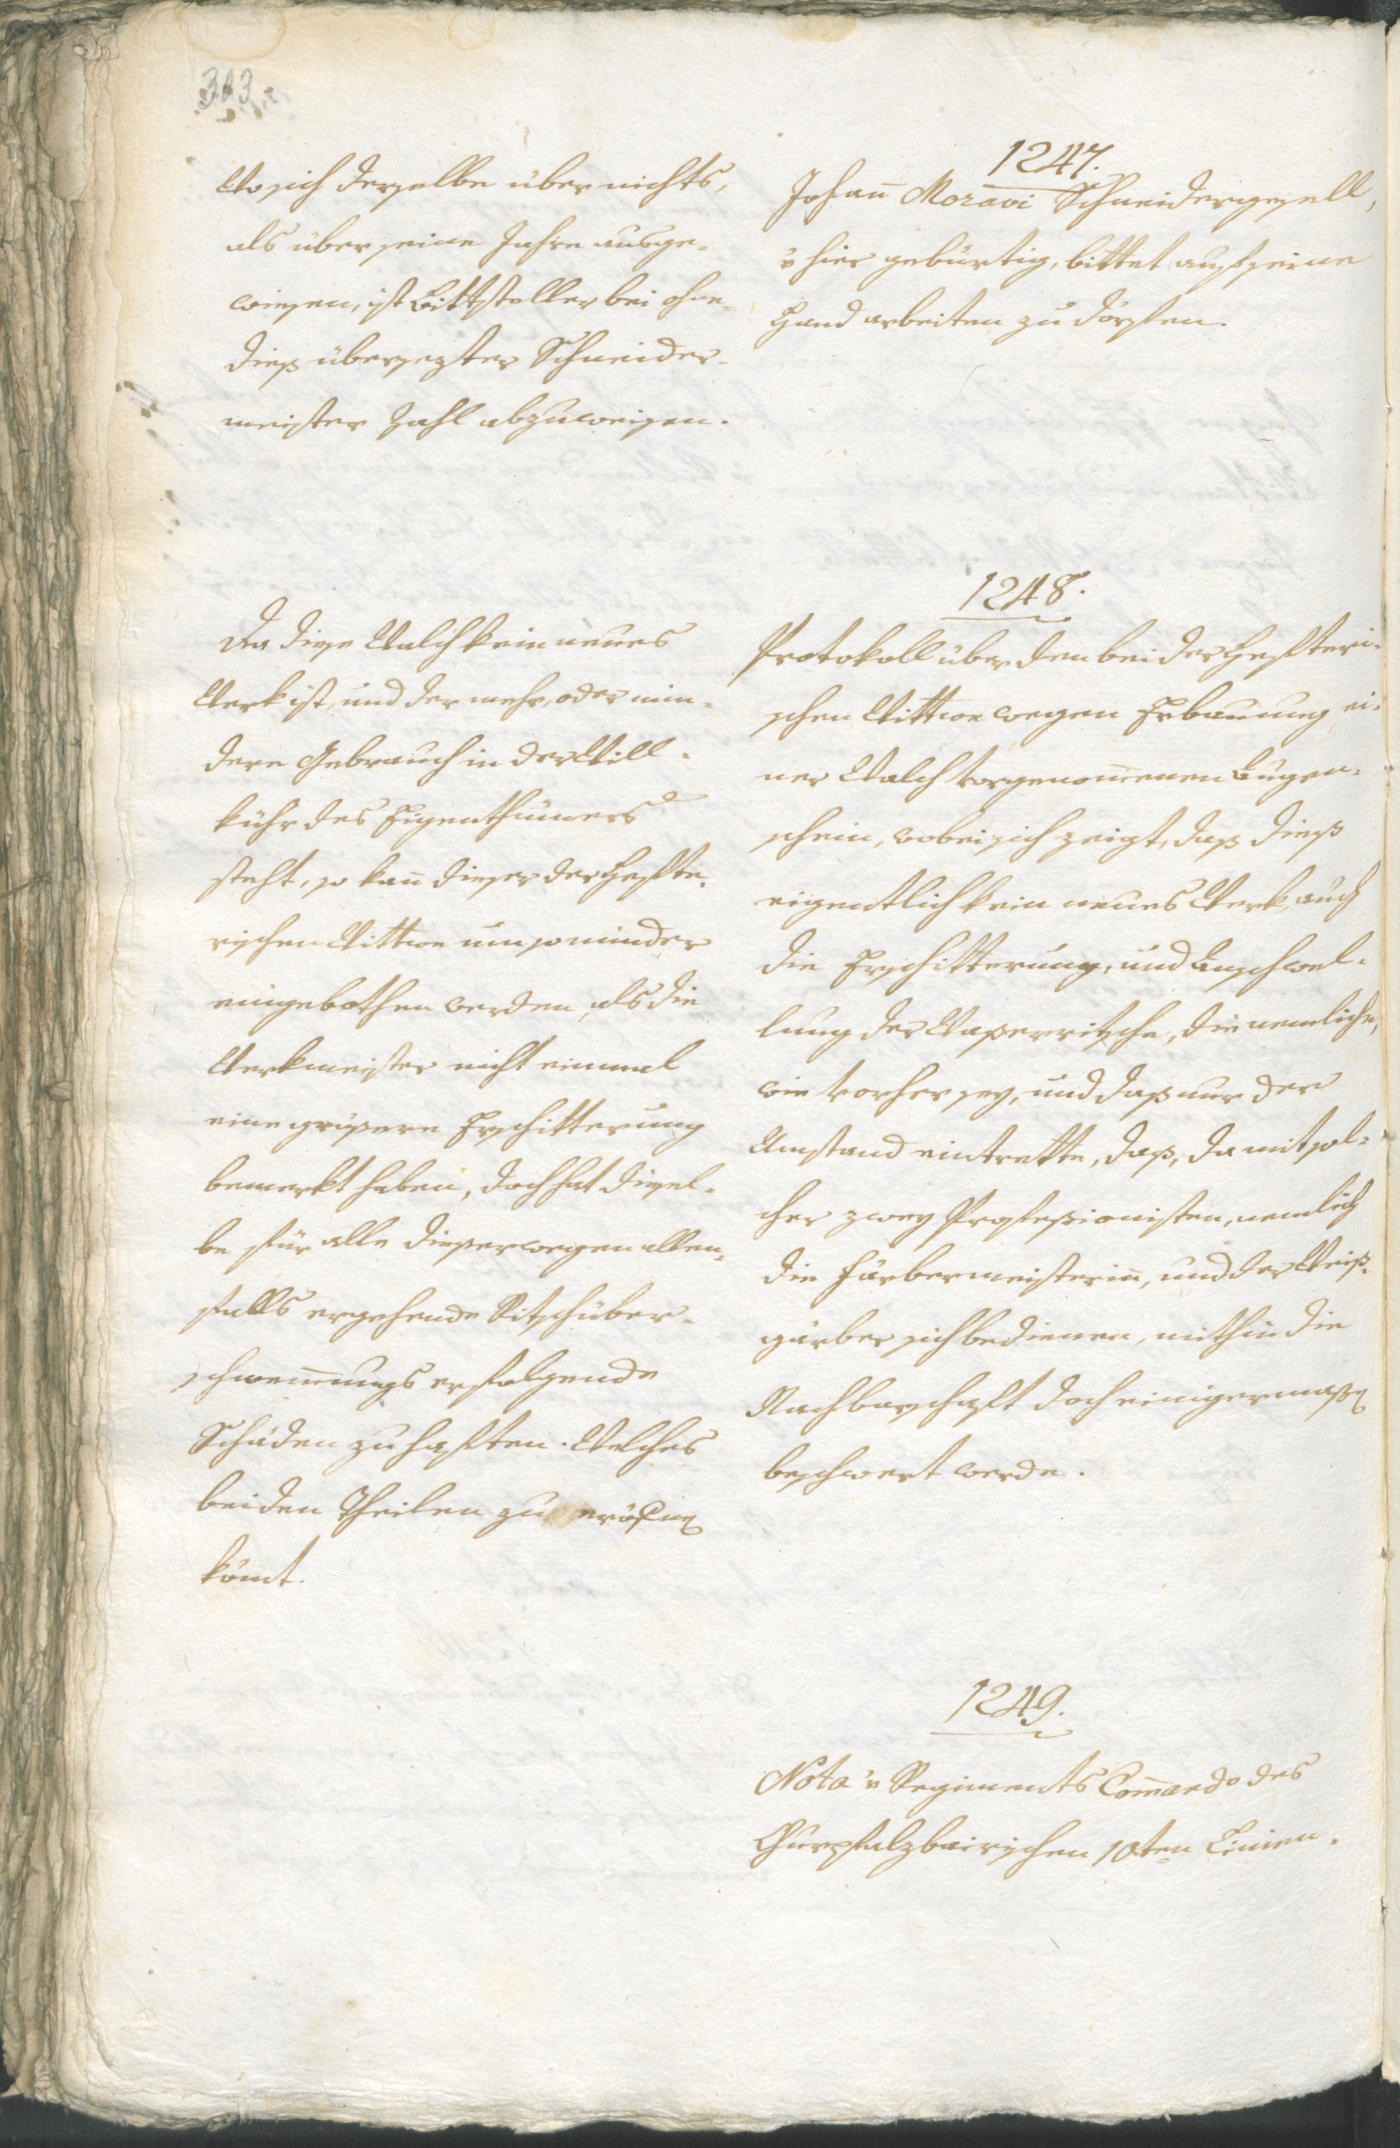 303
Wo sich derselbe über nichts,
als über seine Jahre ausge-
wiesen, ist Bittsteller bei ohne-
dieß übersezter Schneider-
meister Zahl abzuweisen.
1247.
Johañ Moravi Schneidergesell,
v hier gebürtig, bittet auf seine
Hand arbeiten zu dörfen.
Da diese Walch kein neues
Werk ist, und der mehr, oder min-
dere Gebrauch in der Will-
kühr des Eigenthümers
steht, so kañ dieser der Hefte-
rischen Wittwe um so minder
eingebothen werden, als die
Werkmeister nicht einmal
eine grösere Erschitterung
bemerkt haben, doch hat diesel-
be für alle dieserwegen allen-
falls ergehende Ritschüber-
schwem̄ungs erfolgende
Schäden zu haften. Welches
beiden Theilen zu eröfnen
köm̄t.
1248.
Protokoll über den bei der Hefteri-
schen Wittwe wegen Erbauung ei-
ner Walch vorgenom̄enen Augen-
schein, wobei sich zeigt, daß dieß
eigentlich kein neues Werk, auch
die Erschitterung, und Anschwel-
lung der Wasserritsche, die nemliche,
wie vorher sey, und daß nur der
Umstand eintrette, daß, da mit sol-
cher zwey Profesionisten, nemlich
die Färbermeisteriñ, und der Weiß-
gärber sich bedienen, mithin die
Nachbarschaft doch einigermassen
beschwert werde.
1249.
Nota v Regiments Com̄ando des
Churpfalzbairischen 10ten Linien-